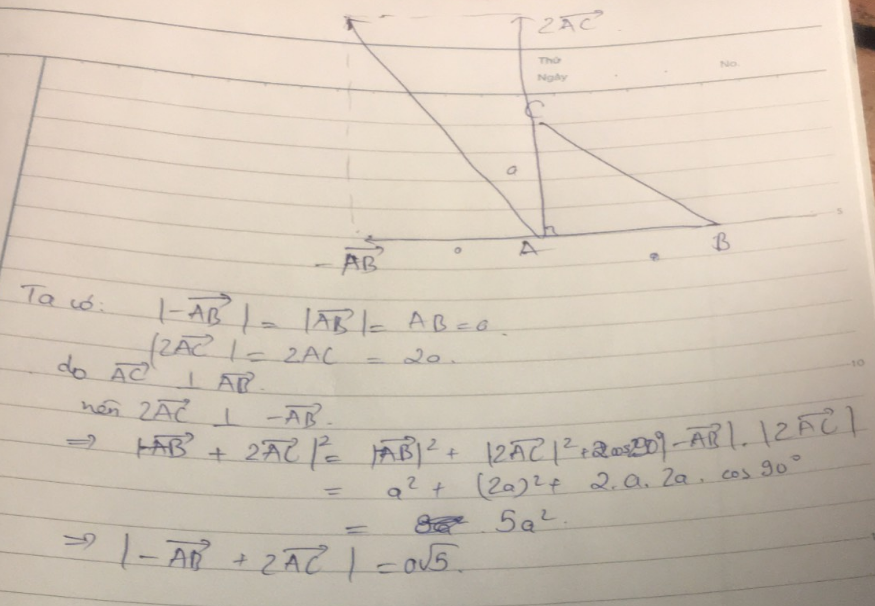 2AC→
Thứ
Ngày
No.
C
a
5
-AB→
a
A
a
B
Ta có: |-AB→| = |AB→| = AB = a.
|2AC→| = 2AC = 2a.
10
do AC→ ⊥ AB→.
nên 2AC→ ⊥ -AB→.
⇒ |-AB→ + 2AC→|² = |AB→|² + |2AC→|² + 2cos90°|-AB→|.|2AC→|
= a² + (2a)² + 2.a.2a.cos 90°
= 5a².
⇒ |-AB→ + 2AC→| = a√5.